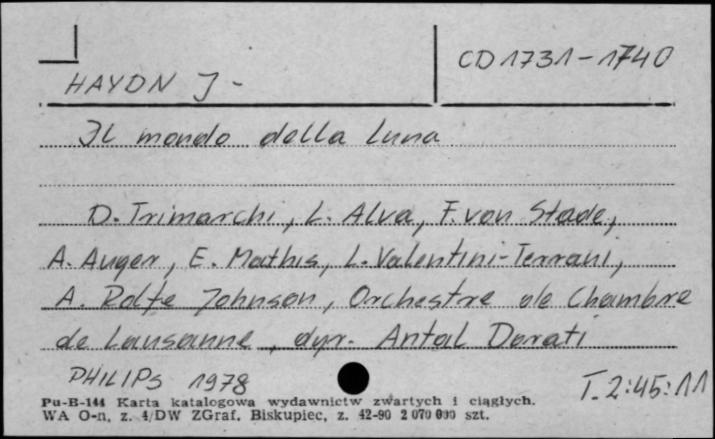 CD 1731-1740
HAYDN J -
Il mondo della Luna
D. Trimarchi, L. Alva, F. von Stade,
A. Auger, E. Mathis, L. Valentini-Terrani,
A. Rolfe Johnson, Orchestre de Chambre
de Lausanne, dyr. Antal Dorati
PHILIPS 1978
T. 2:45:11
Pu-B-144 Karta katalogowa wydawnictw zwartych i ciągłych.
WA O-n, z. 4/DW ZGraf. Biskupiec, z. 42-90 2 070 000 szt.